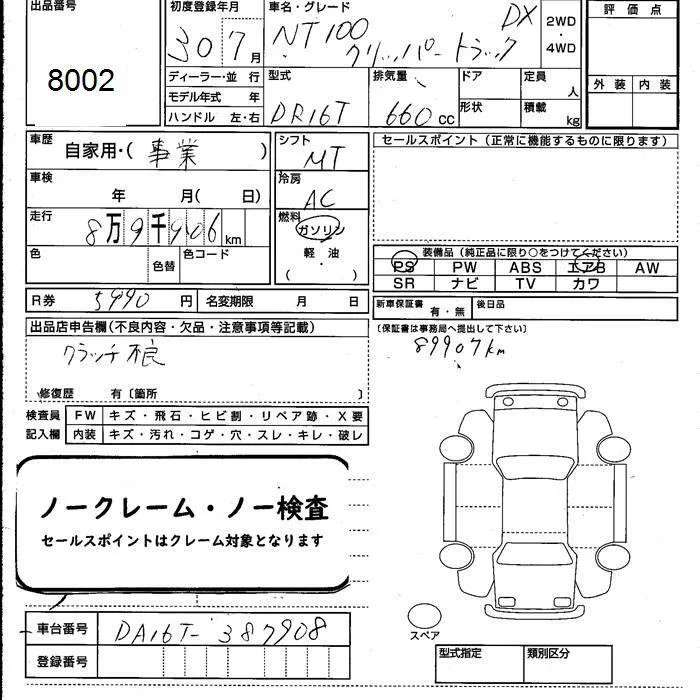 出品番号 初度登録年月 車名・グレード 評価点
8002 30 7月 NT100 クリッパートラック DX 2WD・4WD
ディーラー・並 行 型式 排気量 ドア 定員 人 外装 内装
モデル年式 年 DR16T 660cc 形状 積載 kg
ハンドル 左・右
車歴 自家用・(事業) シフト MT セールスポイント(正常に機能するものに限ります)
車検 年 月( 日) 冷房 AC
走行 8万9千906km 燃料 ガソリン
軽油
( )
色 色替 色コード
装備品(純正品に限り○をつけてください)
PS PW ABS エアB AW
SR ナビ TV カワ
R券 5990円 名変期限 月 日 新車保証書 有・無 後日品
出品店申告欄(不良内容・欠品・注意事項等記載) (保証書は事務局へ提出して下さい)
クラッチ不良 89907km
修復歴 有〔箇所 〕
検査員 FW キズ・飛石・ヒビ割・リペア跡・X要
記入欄 内装 キズ・汚れ・コゲ・穴・スレ・キレ・破レ
ノークレーム・ノー検査
セールスポイントはクレーム対象となります
車台番号 DA16T-387908
スペア
登録番号 型式指定 類別区分